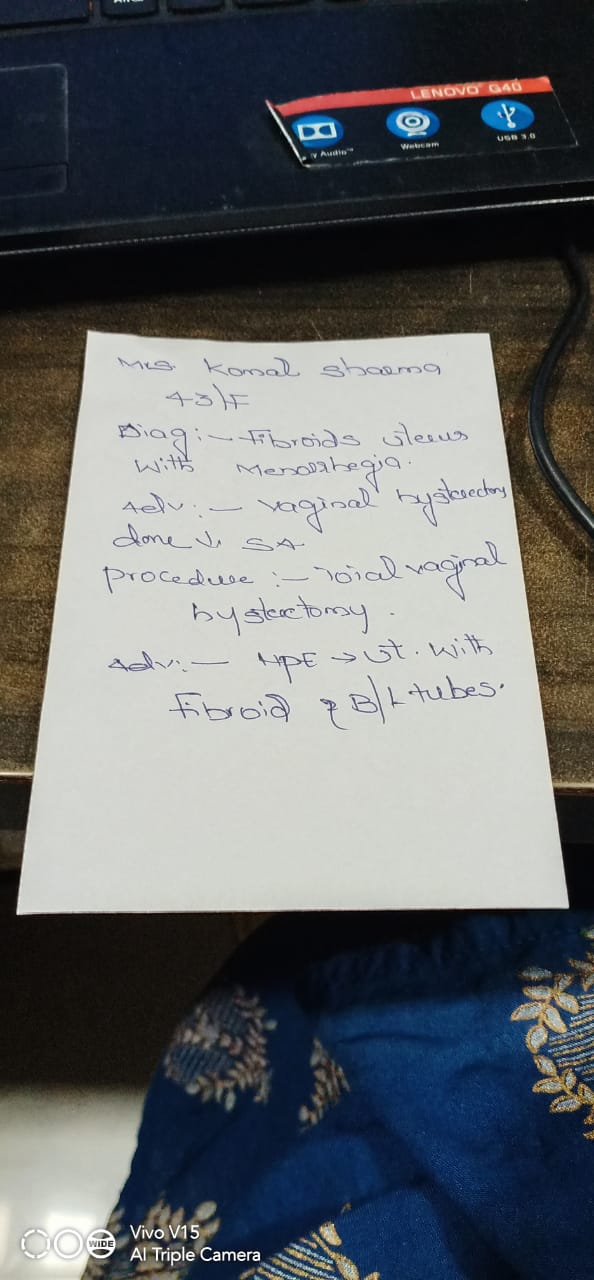 LENOVO G40
y Audio™
Webcam
USB 3.0
Mrs. Komal Sharma
43/F
Diag:- Fibroids uterus
with Menorrhegia.
Adv:- vaginal hysterectomy
done SA
Procedure:- Total vaginal
hysterctomy.
Adv:- HPE → ut. with
fibroid B/L tubes.
WIDE
Vivo V15
AI Triple Camera